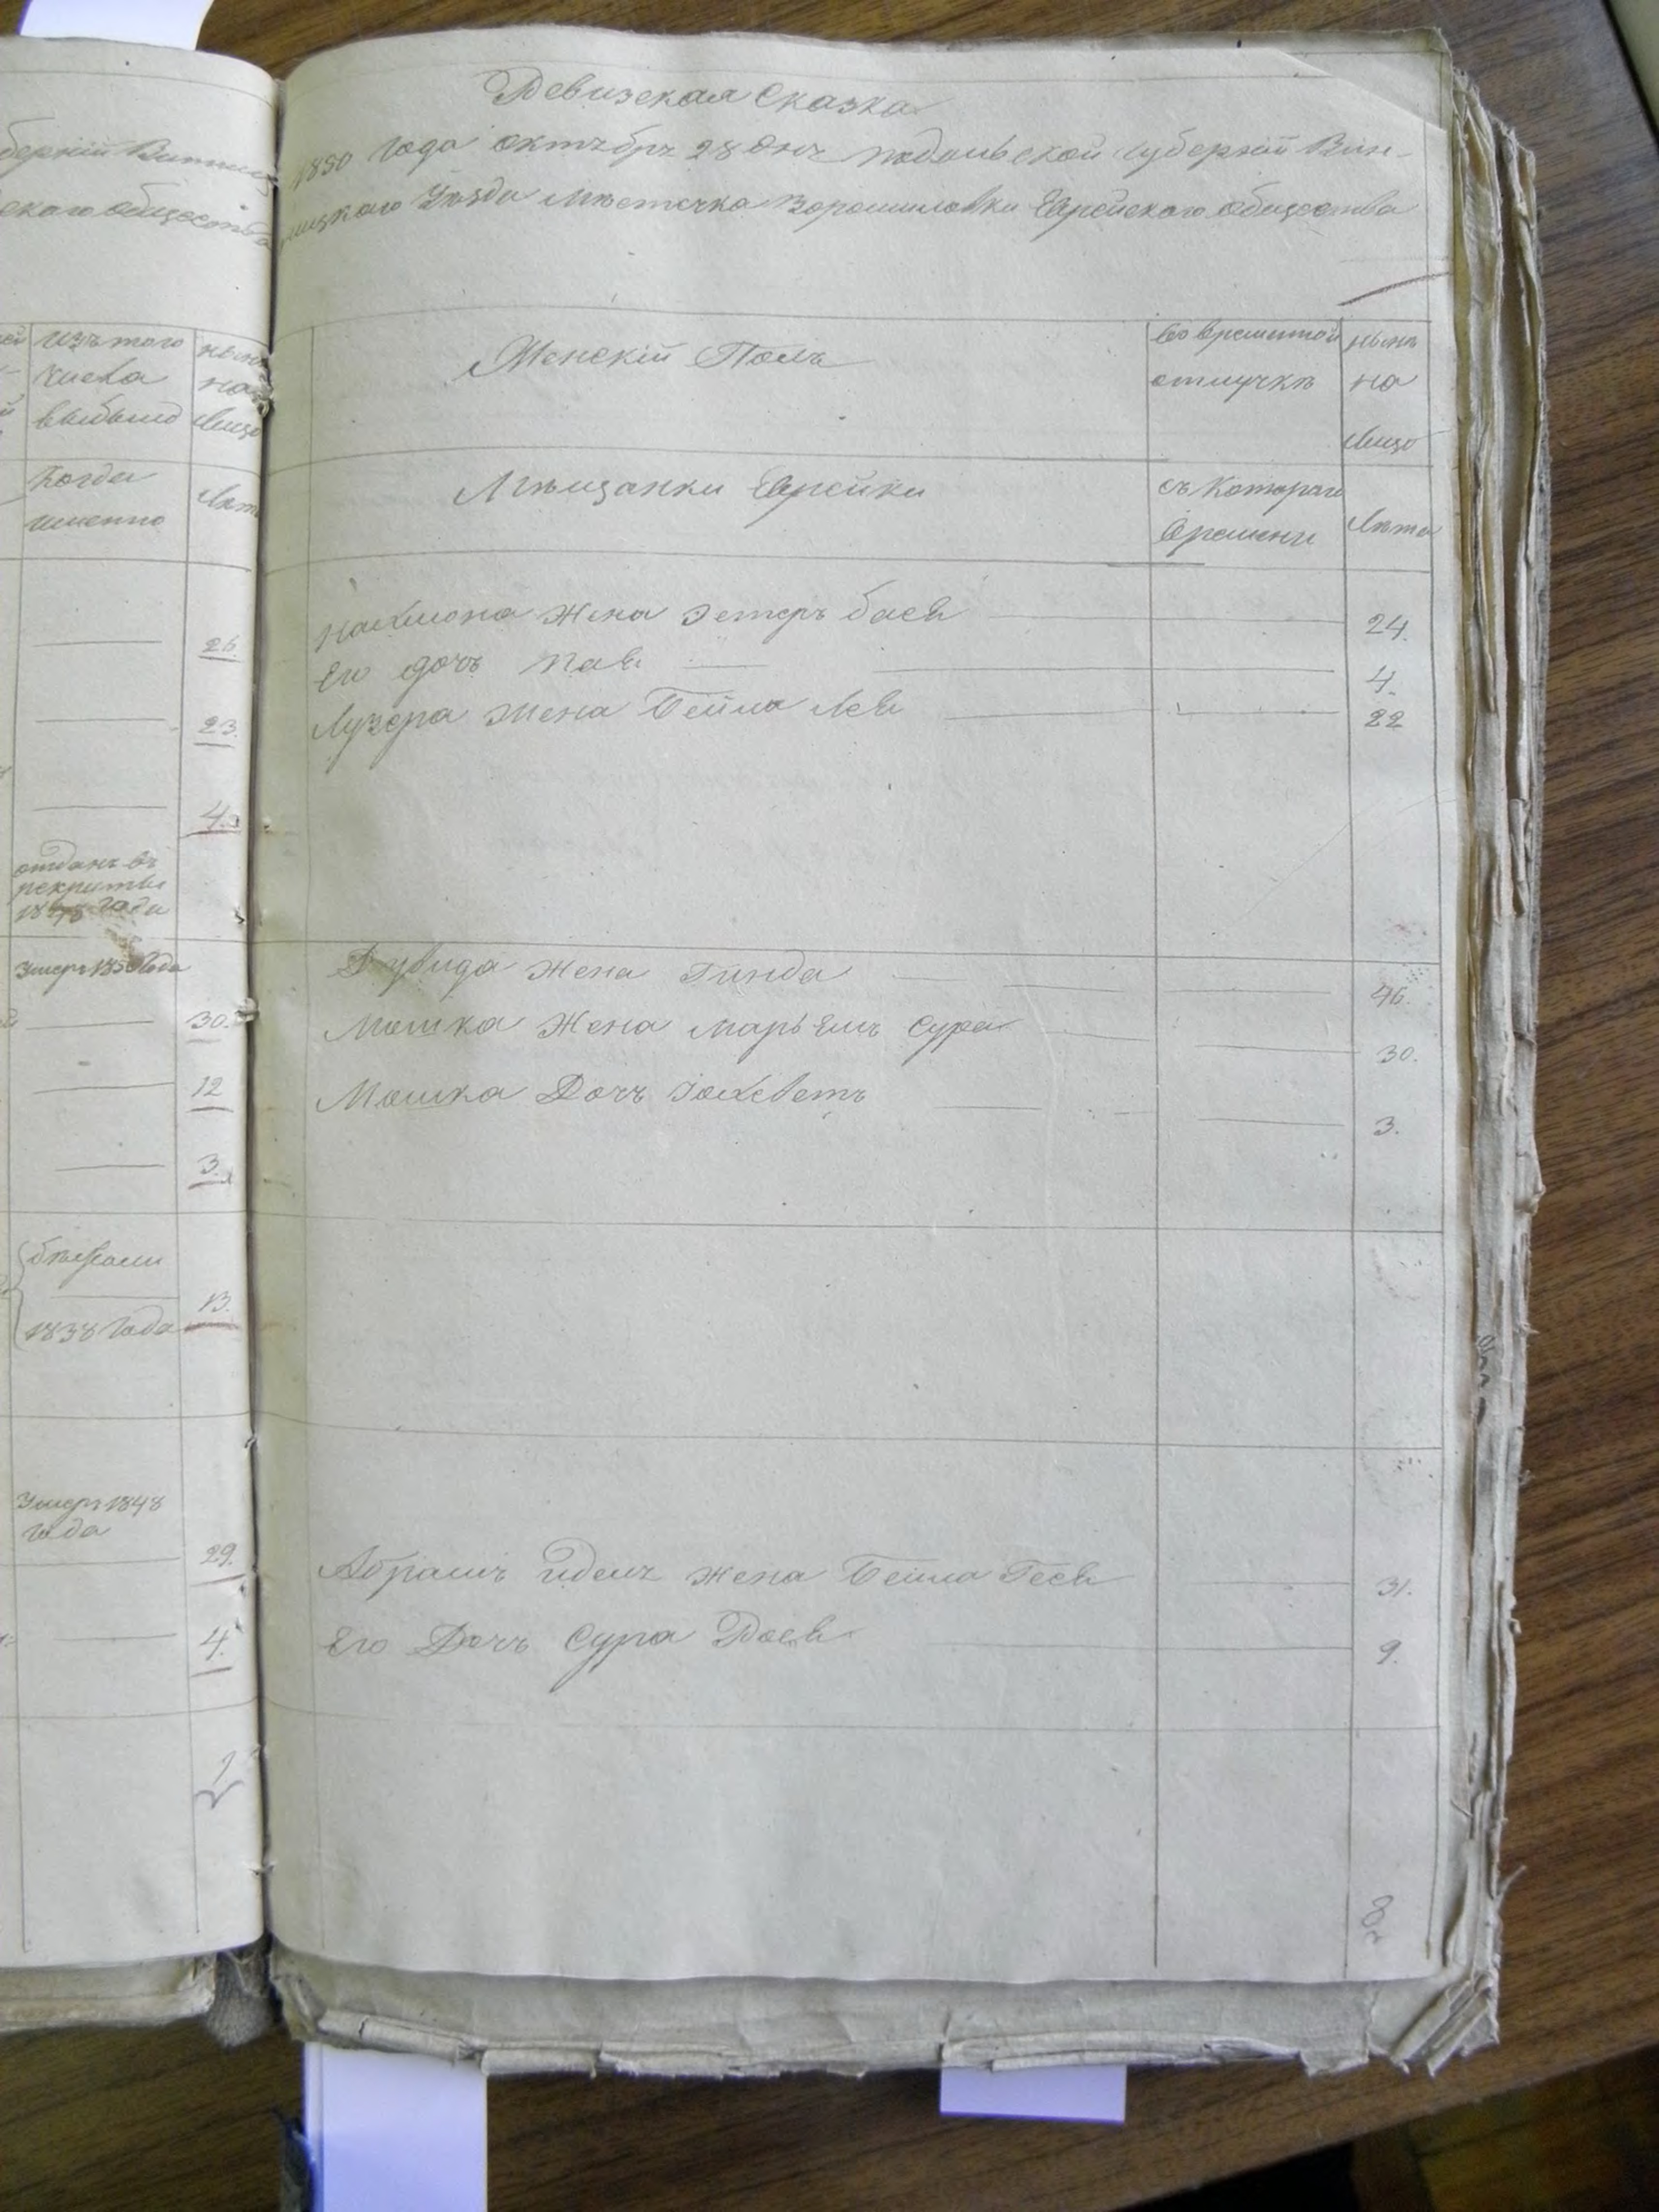 берніи Винниц
скаго общества
изъ того
числа
выбыло
нынѣ
на
лицо
когда
именно
Лѣта
26.
23.
4.
отданъ въ
рекруты
1848 года
Умеръ 1850 года
30.
12
3.
бѣжали
1838 года
13.
Умеръ 1848
года
29.
4.
Ревизская Сказка
1850 Года октября 28 дня подольской губерніи Вин-
ницкаго Уѣзда Мѣстечка Ворошиловки Еврейскаго общества
Женскій Полъ
во временной
отлучкѣ
нынѣ
на
лицо
Мѣщанки Еврейки
съ Котораго
времени
Лѣта
Нахмона Жена Эстеръ бася 24.
Его дочъ 4.
Лузера Жена Бейла Лея 22
Дувида Жена Гинда 46.
Мошка Жена Марьемъ Сура 30.
Мошка Дочъ Іохеветъ 3.
Абрамъ Идель жена Бейла Геся 31.
Его Дочъ Сура Рося 9.
8